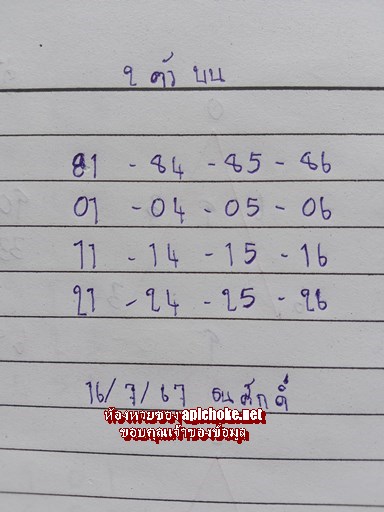 2 ตัว บน
81 - 84 - 85 - 86
01 - 04 - 05 - 06
11 - 14 - 15 - 16
21 - 24 - 25 - 26
16/7/67 ธนศักดิ์
ห้องหวยของ apichoke.net
ขอบคุณเจ้าของข้อมูล